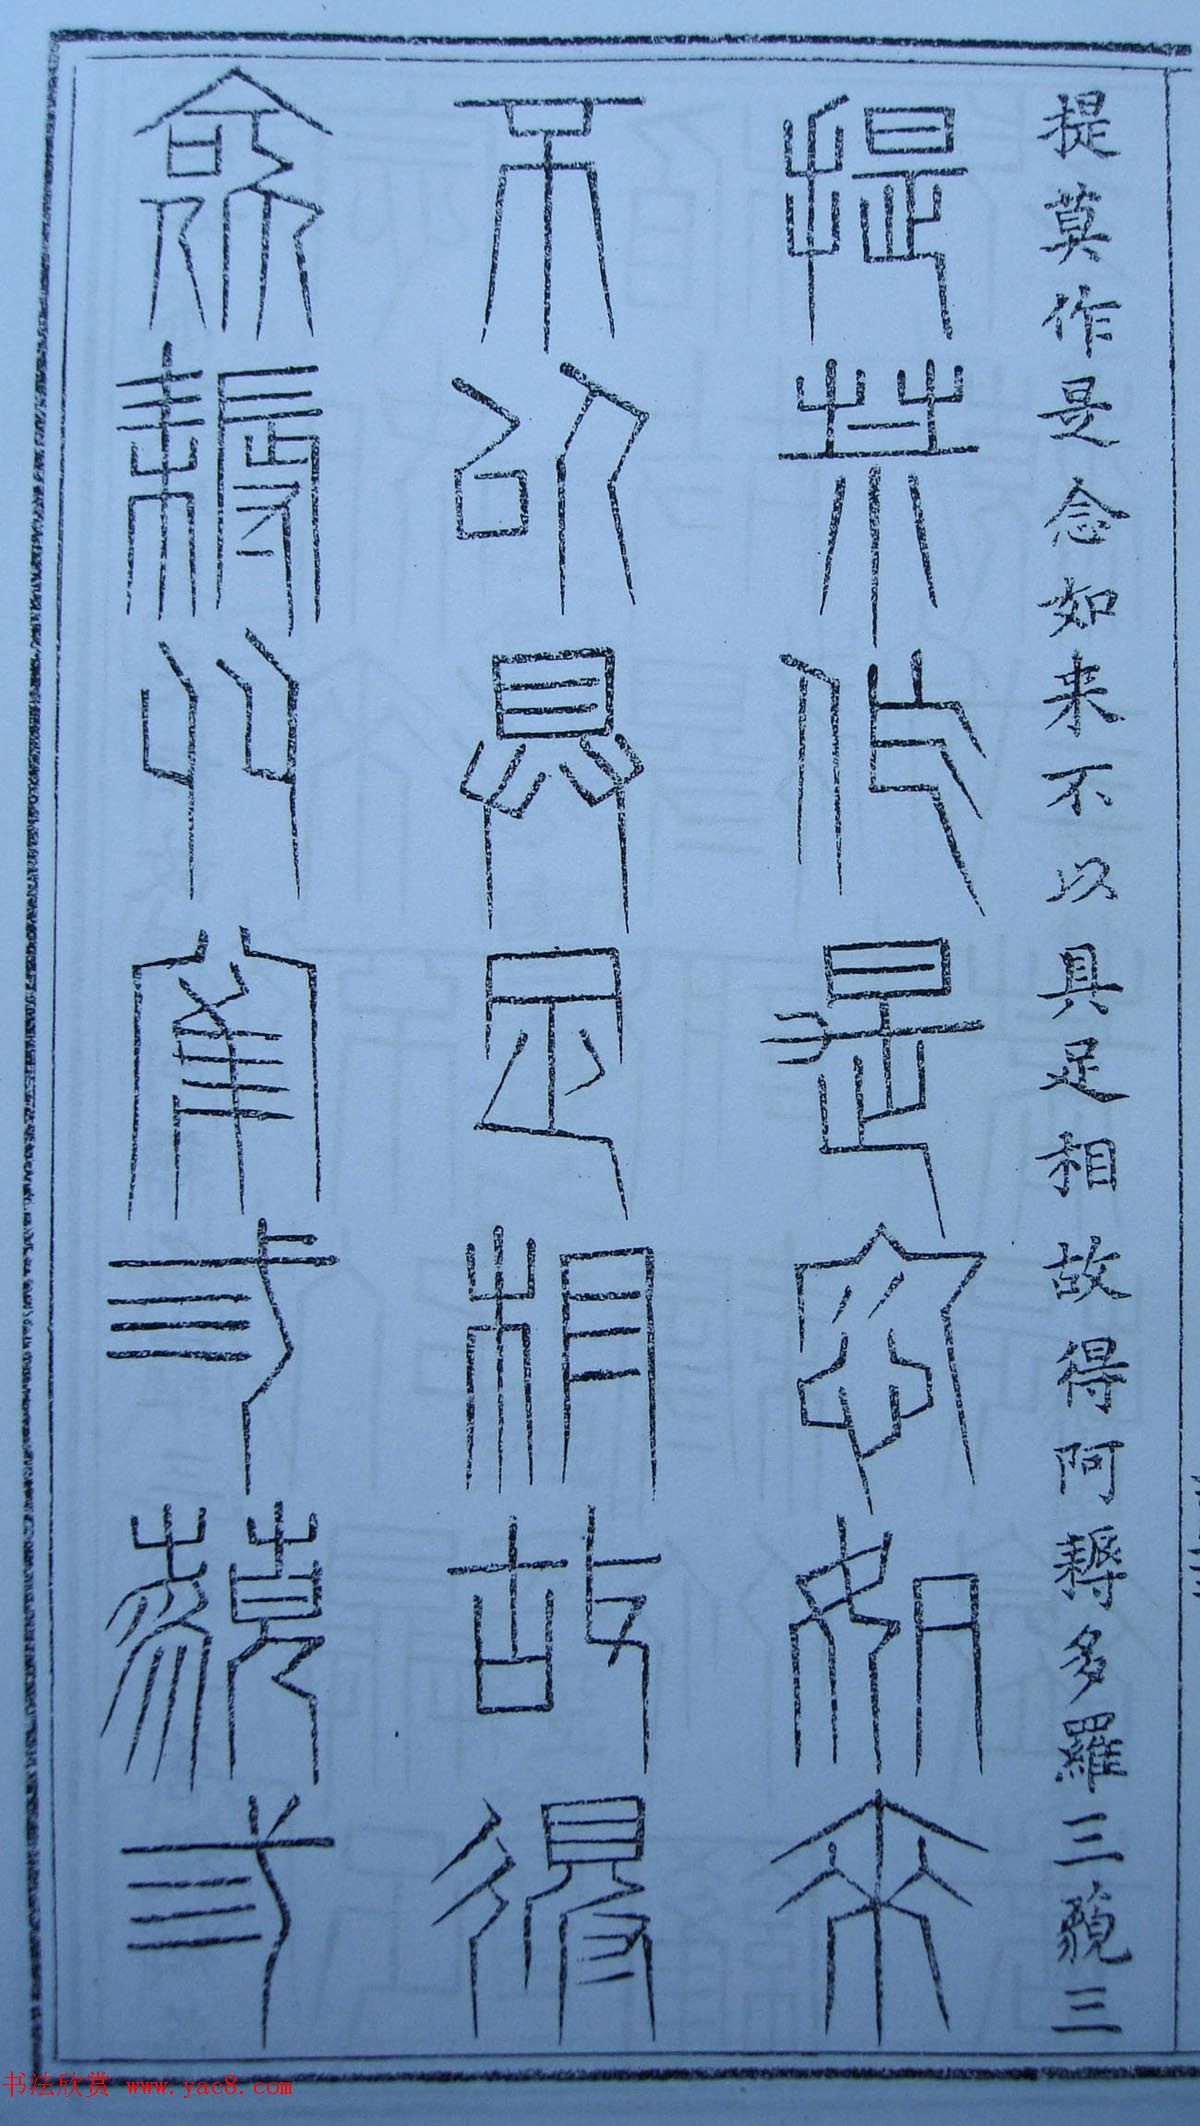 提莫作是念如来不以具足相故得阿耨多羅三藐三
提莫作是念如來
不以具足相故得
阿耨多羅弎藐弎
书法欣赏 www.yac8.com